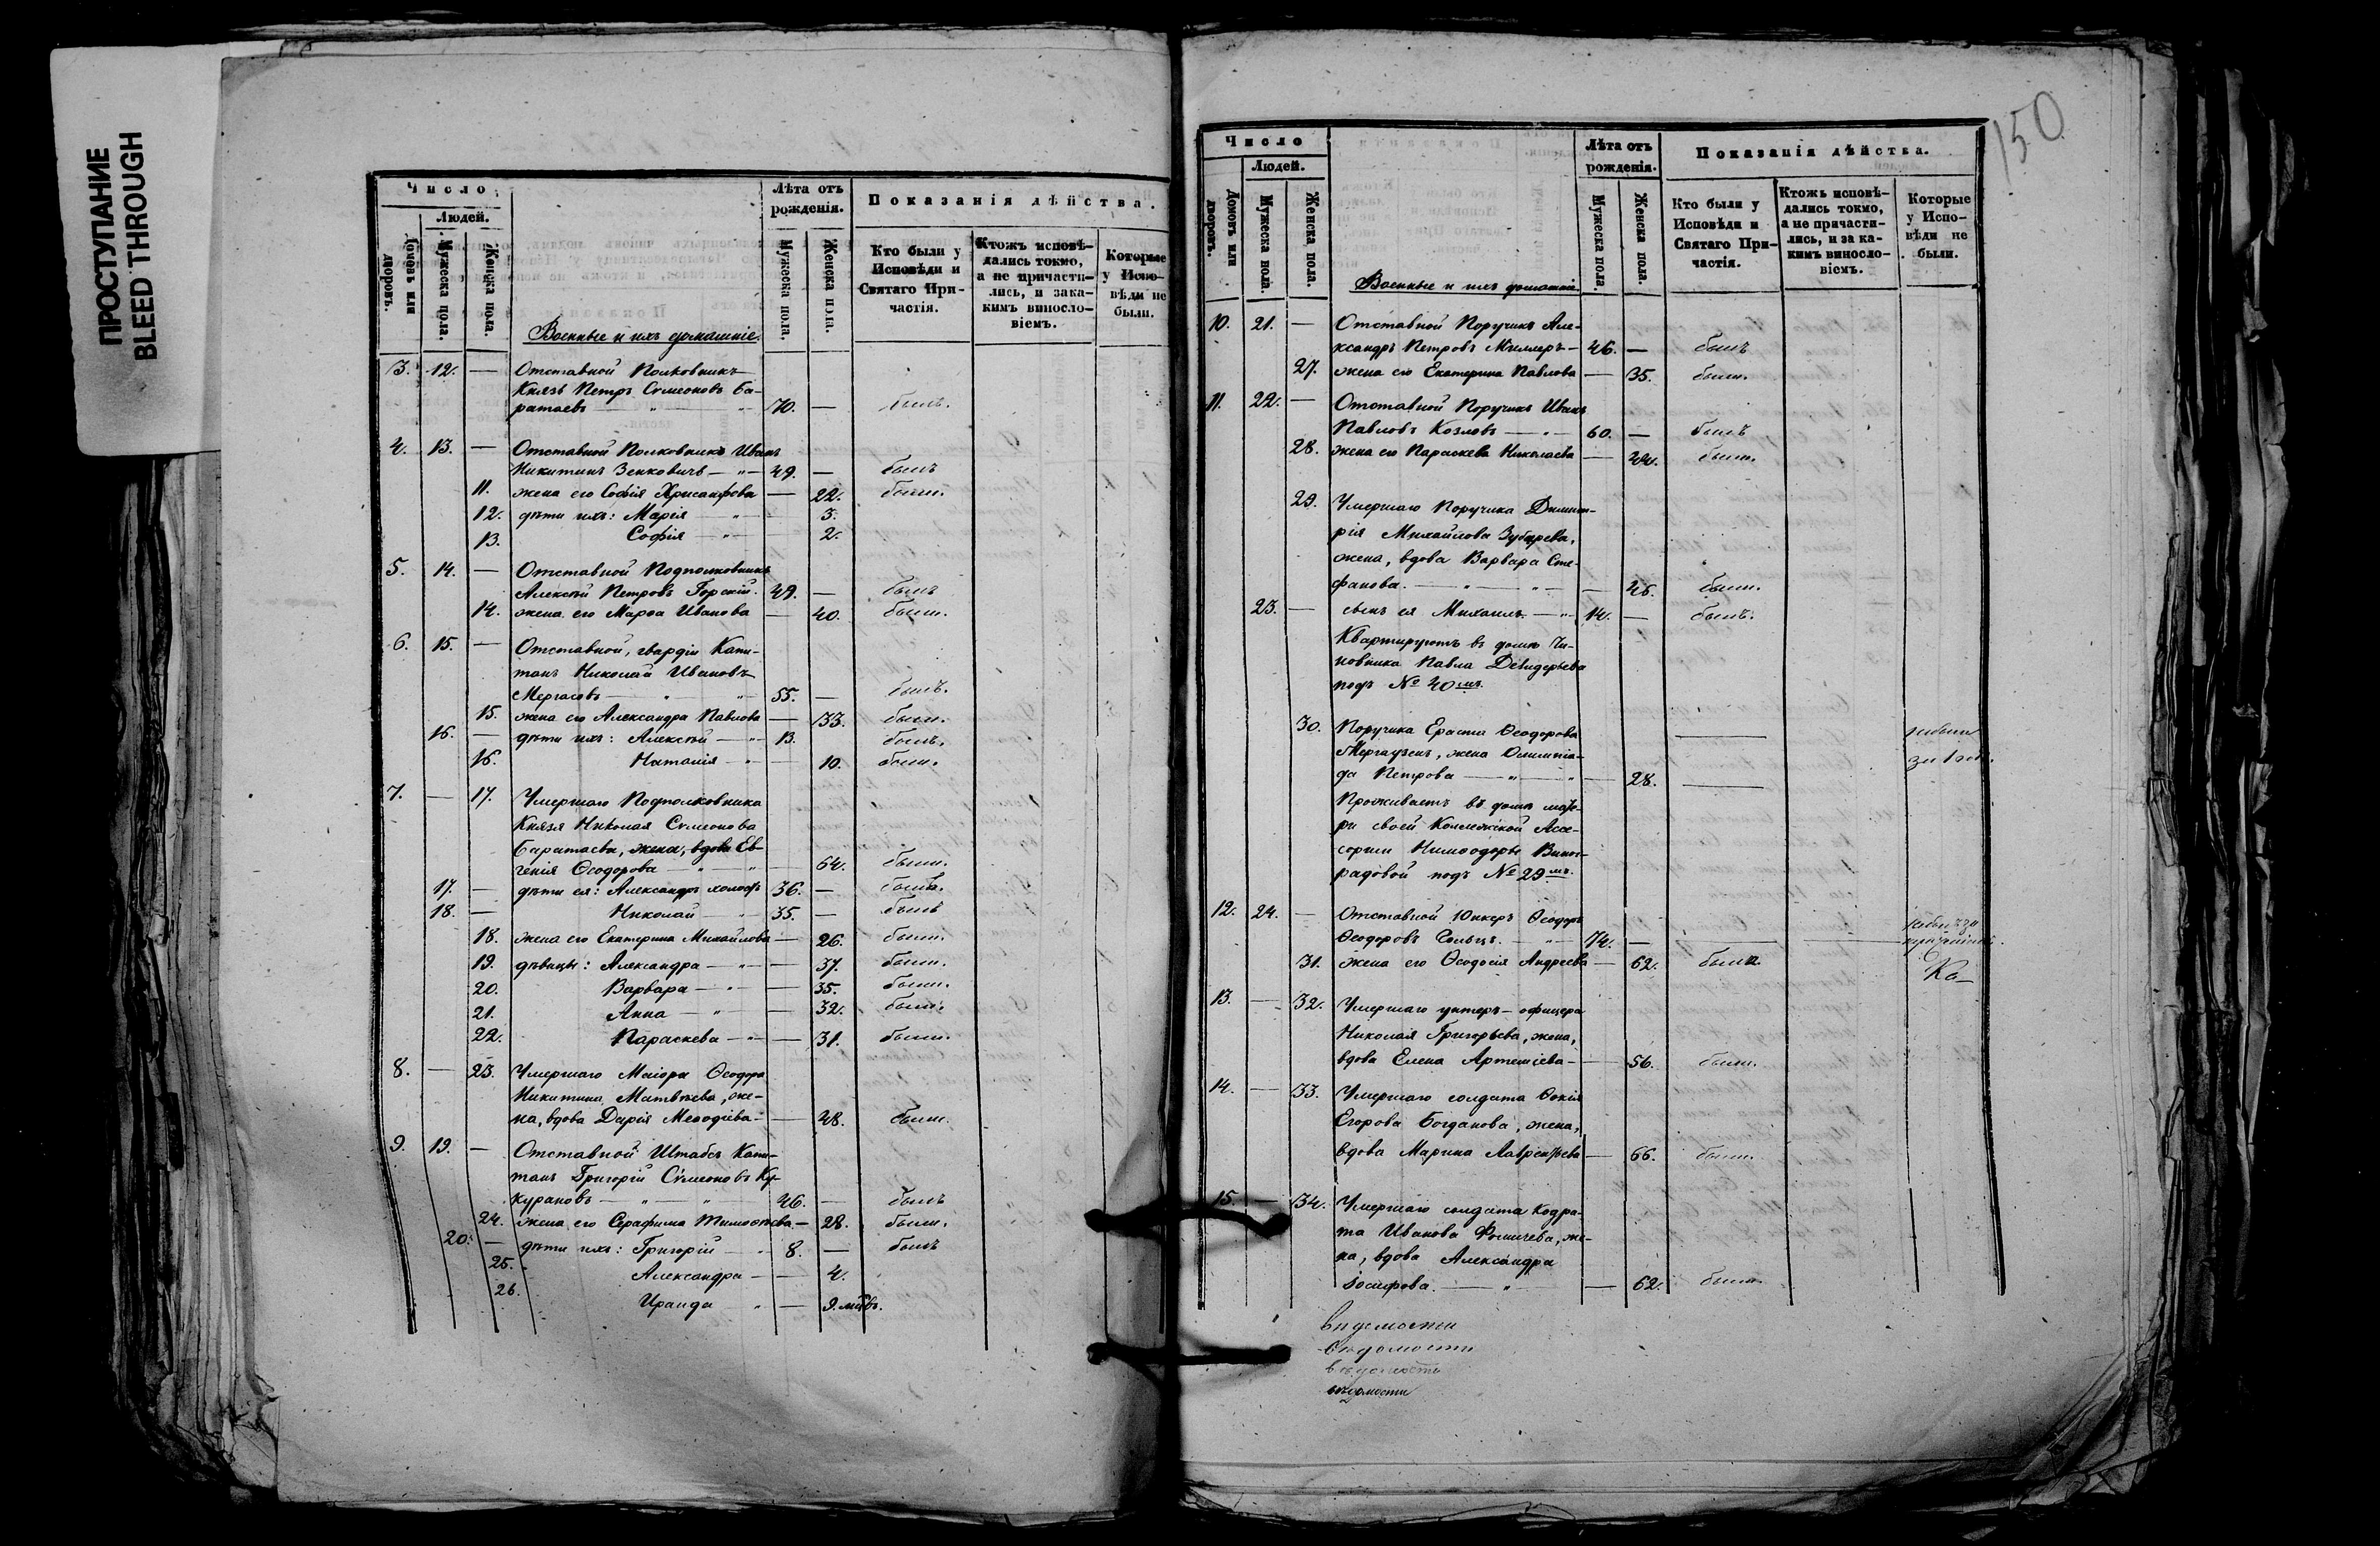 ПРОСТУПАНИЕ
BLEED THROUGH
Число
Людей.
Домовъ или дворовъ.
Мужеска пола.
Женска пола.
Лѣта отъ рожденія.
Мужеска пола.
Женска пола.
Показанія дѣйства.
Кто были у Исповѣди и Святаго Причастія.
Ктожъ исповѣ-
дались токмо,
а не причасти-
лись, и зака-
кимъ винослo-
віемъ.
Которые
у Испо-
вѣди не
были.
Военные и ихъ домашніе.
3. 12. — Отставной Полковникъ
Князь Петръ Сѵмеоновъ Ба-
ратаевъ — " — " 70. — былъ.
4. 13. — Отставной Полковникъ Иванъ
Никитинъ Зенковичъ — " — 49. — былъ
11. жена его Софія Хрисанфова — 22. была.
12. дѣти ихъ: Марія — " — 3.
13. Софія — " — 2.
5. 14. — Отставной Подполковникъ
Алексѣй Петровъ Горскій. 49. — былъ
14. жена его Марѳа Иванова — 40. была.
6. 15. — Отставной, гвардіи Капи-
танъ Николай Ивановъ
Мергасовъ — " — " 55. — былъ.
15. жена его Александра Павлова — 33. была.
16. — дѣти ихъ: Алексѣй — " — 13. былъ.
16. Наталія — " — 10. была.
7. — 17. Умершаго Подполковника
Князя Николая Сѵмеонова
Баратаева, жена, вдова Ев-
генія Ѳеодорова — " — " — 64. была.
17. — дѣти ея: Александръ холостъ 36. — былъ.
18. — Николай — " 35. — былъ
18. жена его Екатерина Михайлова — 26. была.
19. дѣвицы: Александра — " — 37. была.
20. Варвара — " — 35. была.
21. Анна — " — 32. была.
22. Параскева — " — 31. была.
8. — 23. Умершаго Маіора Ѳеодора
Никитина Матвѣева, же-
на, вдова Дарія Меѳодіева — 48. была.
9. 19. — Отставной Штабсъ Капи-
танъ Григорій Сѵмеоновъ Ку-
курановъ — " — " 46. — былъ
24. жена его Серафима Тимоѳеева — 28. была.
20. — дѣти ихъ: Григорій — " 8. — былъ
25. Александра — — 4.
26. Ираида " — 9. мѣсв.
150
Число
Людей.
Домовъ или дворовъ.
Мужеска пола.
Женска пола.
Лѣта отъ рожденія.
Мужеска пола.
Женска пола.
Показанія дѣйства.
Кто были у
Исповѣди и
Святаго При-
частія.
Ктожъ исповѣ-
дались токмо,
а не причасти-
лись, и за ка-
кимъ винослo-
віемъ.
Которые
у Испо-
вѣди не
были.
Военные и ихъ домашніе.
10. 21. — Отставной Поручикъ Але-
ксандръ Петровъ Миллеръ — 46. — былъ
27. жена его Екатерина Павлова — 35. была.
11. 22. — Отставной Поручикъ Иванъ
Павловъ Козловъ — " — 60. — былъ
28. жена его Параскева Николаева — 44. была.
29. Умершаго Поручика Димит-
рія Михайлова Зубарева,
жена, вдова Варвара Сте-
фанова. — " — " — 46. была.
23. — сынъ ея Михаилъ — " 14. — былъ.
Квартируютъ въ домѣ Чи-
новника Павла
подъ № 40мъ.
30. Поручика Ераста Ѳеодорова
жена Олимпіа-
да Петрова — " — " — 28. —
Проживаетъ въ домѣ мате-
ри своей Коллежской Ассе-
сорши Нимфодоры Виног-
радовой подъ № 29мъ.
12. 24. — Отставной Юнкеръ Ѳеодоръ
Ѳеодоровъ Гольцъ. — " — 74. —
31. жена его Ѳеодосія Андреева — 62. была.
13. — 32. Умершаго унтеръ-офицера
Николая Григорьева, жена,
вдова Елена Артеміева — — 56. была.
14. — 33. Умершаго солдата Ѳокія
Егорова Богданова, жена,
вдова Марина Лаврентьева — 66. была.
15. — 34. Умершаго солдата Кодра-
та Иванова Фомичева, же-
на, вдова Александра
Іосифова. — " — 62. была.
вѣдомости
вѣдомости
вѣдомость
вѣдомости